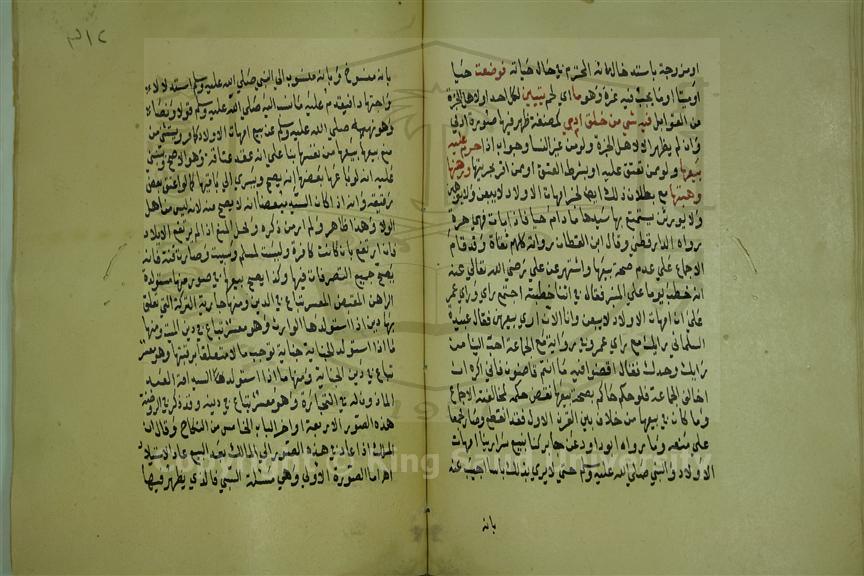 او مزوجة باستدخالها منيه المحترم في حال حياته فوضعت حيا
او ميتا او ما يجب فيه غرة وهو ما اي لحم يتبين لكل احد او لاهل الخبرة
من القوابل فيه شي من خلق ادمي كمضغة ظهر فيها صورة ادمي
وان لم يظهر الا لاهل الخبرة ولو من غير النسا وجواب اذا حرم عليه
بيعها ولو ممن تعتق عليه او بشرط العتق او ممن اقر بحريتها ورهنها
وهبتها مع بطلان ذلك ايضا لخبر امهات الاولاد لا يبعن ولا يوهبن
ولا يورثن يستمتع بها سيدها ما دام حيا فاذا مات فهي حرة
رواه الدارقطني وقال ابن القطان رواته كلهم ثقاة وقد قام
الاجماع على عدم صحة بيعها واشتهر عن علي رضي الله تعالى عنه
انه خطب يوما على المنبر فقال في اثنا خطبته اجتمع رايي وراي عمر
على ان امهات الاولاد لا يبعن وانا الان اري بيعهن فقال عبيدة
السلماني رايك مع راي عمر وفي رواية مع الجماعة احب الينا من
رايك وحدك فقال اقضوا فيه ما انتم قاضون فاني اكره ان
اخالف الجماعة فلو حكم حاكم بصحة بيعها نقض حكمه لمخالفته الاجماع
وما كان في بيعها من خلاف بين القرن الاول فقد انقطع وما رجمعا
على منعه وما رواه ابو داود عن جابر كنا نبيع سرارينا امهات
الاولاد والنبي صلى الله عليه وسلم حي لا يري بذلك باسا اجيب عنه
بانه
٣١٢
بانه منسوخ وبانه منسوب الى النبي صلى الله عليه وسلم استدلالا
واجتهادا فيقدم عليه ما نسب اليه صلى الله عليه وسلم قولا ونصا
وهو نهيه صلى الله عليه وسلم عن بيع امهات الاولاد كما مر ويستثنى من
منع بيعها بيعها من نفسها بنا على انه عقد عتاقة وهو الاصح ويستثني
عليه انه لو باعها بعضها انه يصح ويسري الى باقيها كما لو اعتق بعض
رقيقه وانه اذا كان السيد مبعضا انه لا يصح منه لانه ليس من اهل
الولا وهذا ظاهر ولم ار من ذكره ومحل المنع اذا لم يرتفع الايلاد
فان ارتفع بان كانت كافرة وليست لمسلم وسبيت وصارت قنة فانه
يصح جميع التصرفات فيها وكذا يصح بيعها في صور منها مستولدة
الراهن المقبض المعسر تباع في الدين ومنها جارية التركة التي تعلق
بها دين اذا استولدها الوارث وهو معسر تباع في دين الميت ومنها
ما اذا استولد الجانية جناية توجب مالا متعلقا برقبتها وهو معسر
تباع في دين الجناية ومنها ما اذا استولد امة العبد
الماذون له في التجارة وهو معسر تباع في دينه وقد ذكر في الروضة
هذه الصور الاربعة اواخر الباب الخامس من النكاح وقال ان
الملك اذا عاد في هذه الصور الى المالك بعد البيع عاد الاستيلاد
اهـ اما الصورة الاولى وهي مسئلة السبي فالذي يظهر فيها
Copyright © King Saud University